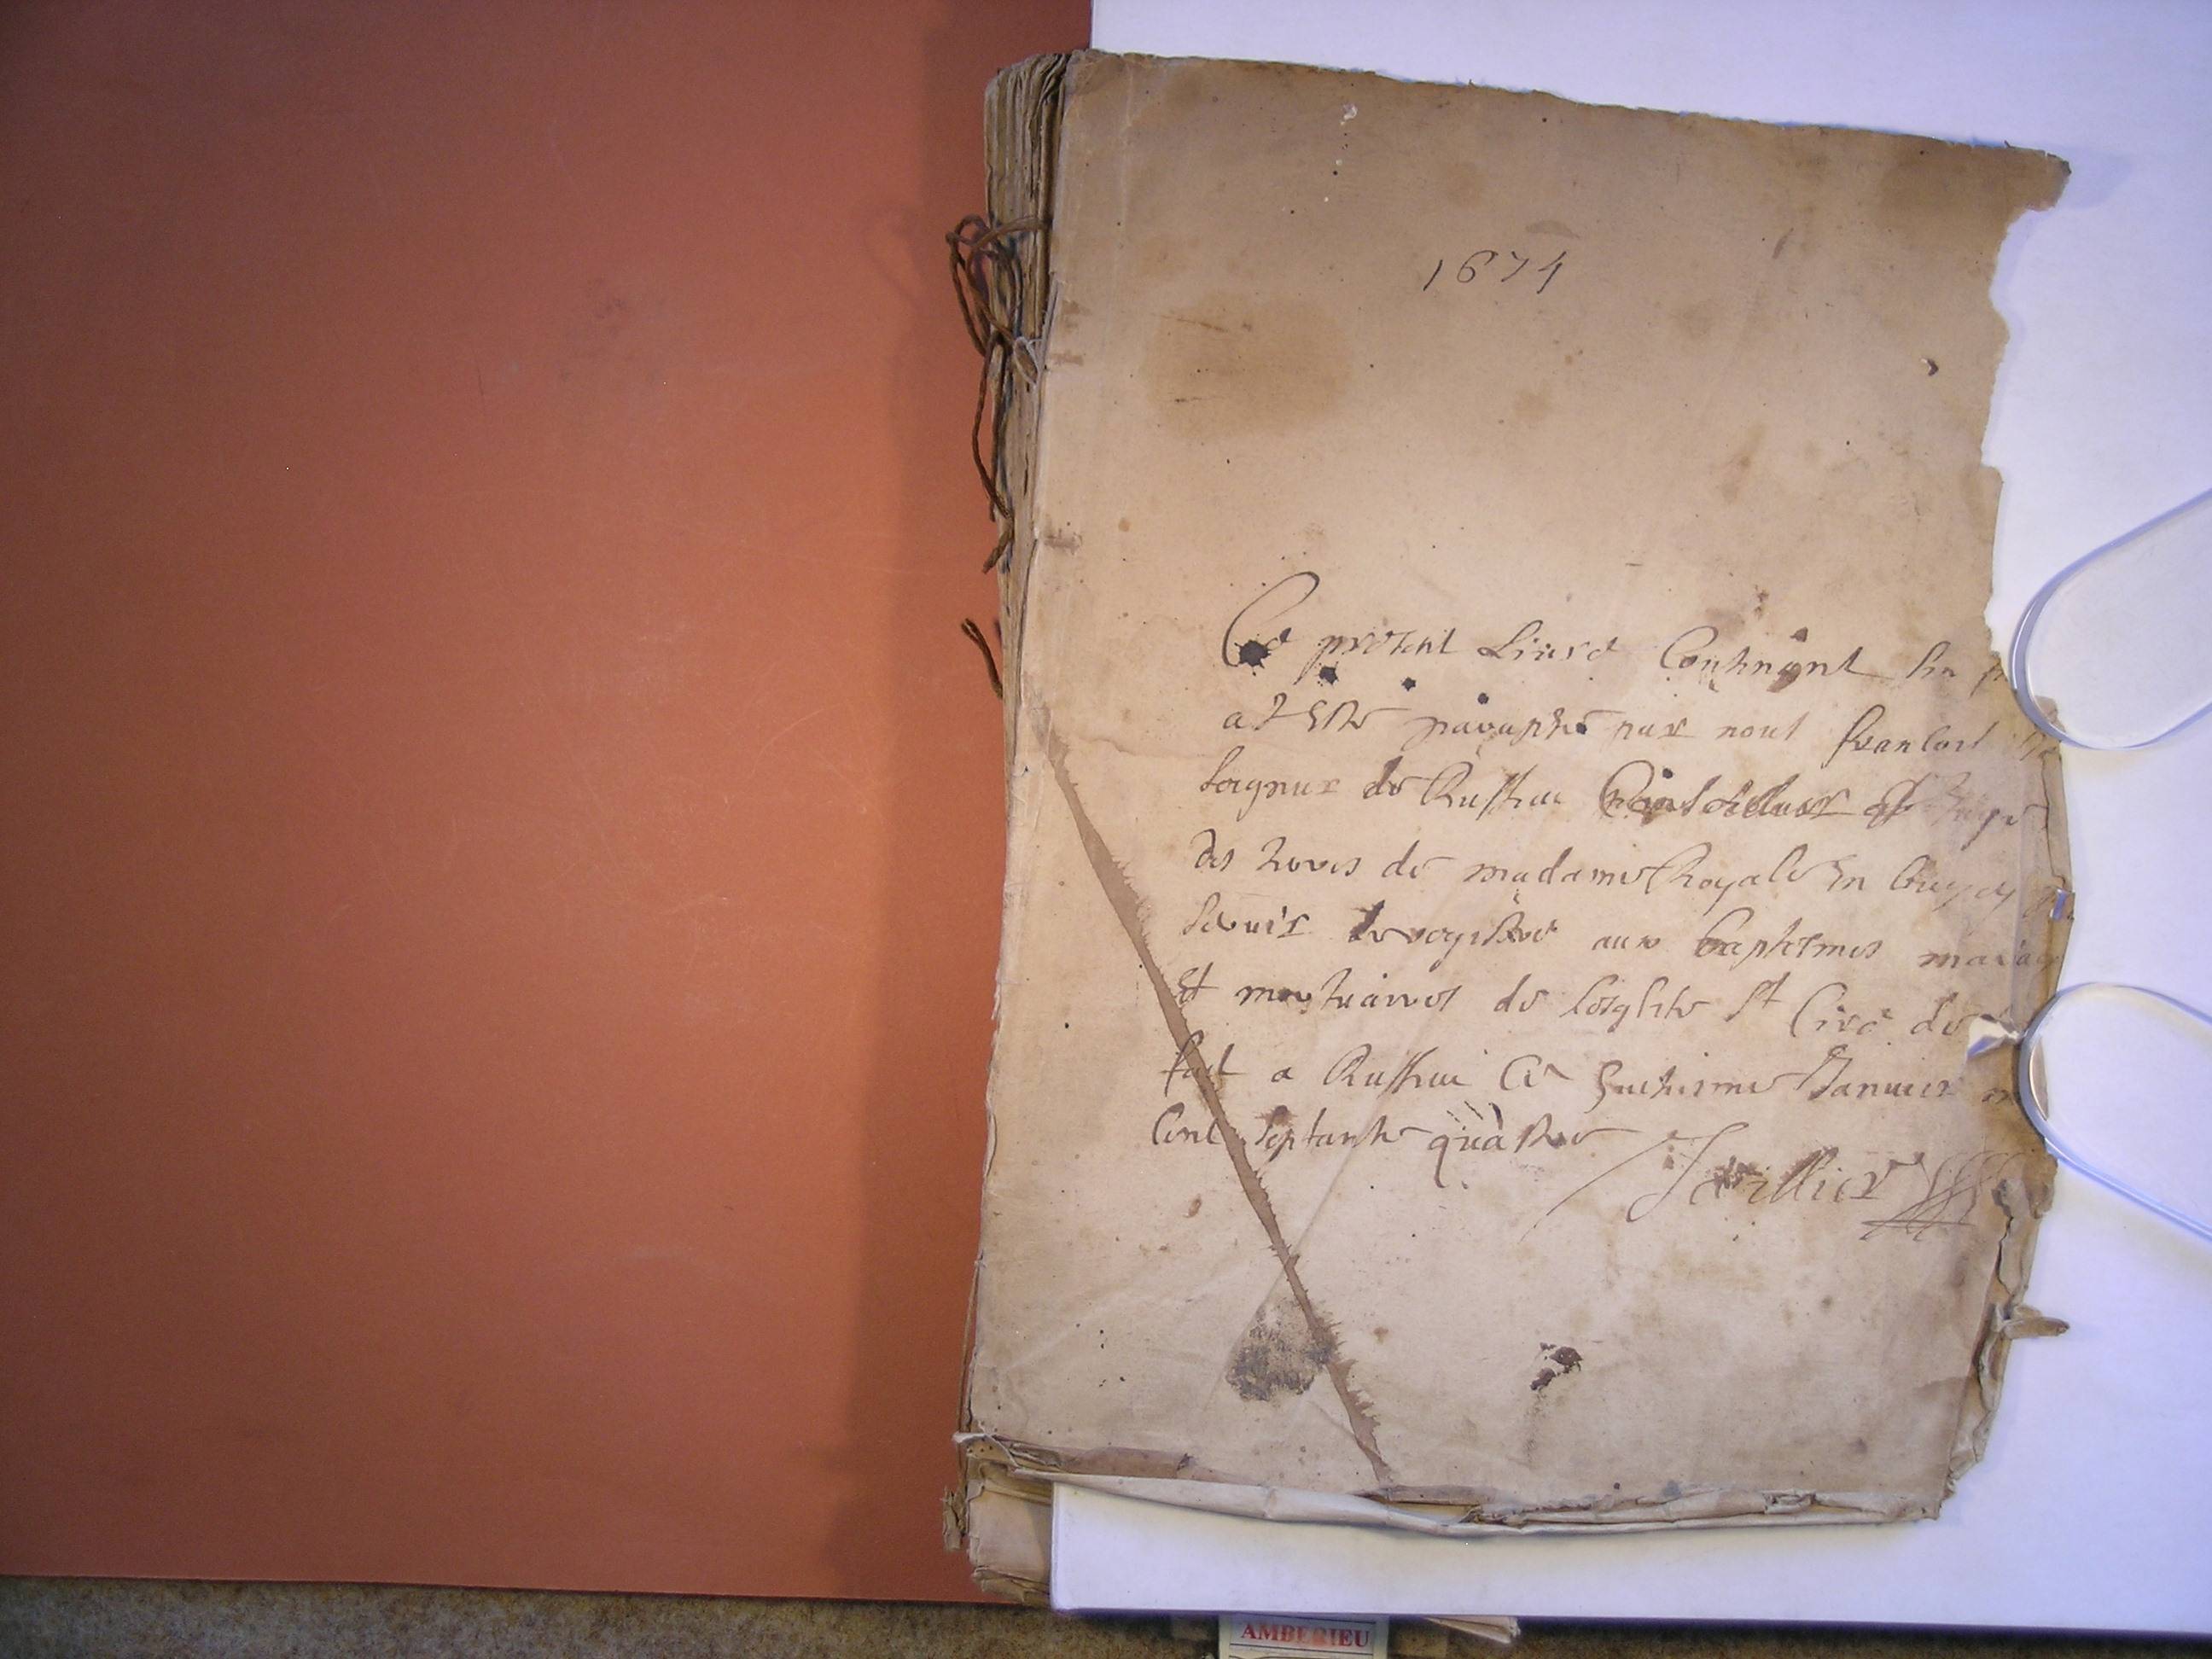 1674
Ce present Liure Contenant
a Esté paraphé par nous francois
seigneur de Ruffieu Conseiller et Juge
des terres de madame Royale En bugey
seruir de registre aux baptesmes mariag
Et mortuaires de lesglise St Cire de
fait a Ruffieu Ce huictiesme Januier
Cent septante quatre
AMBERIEU